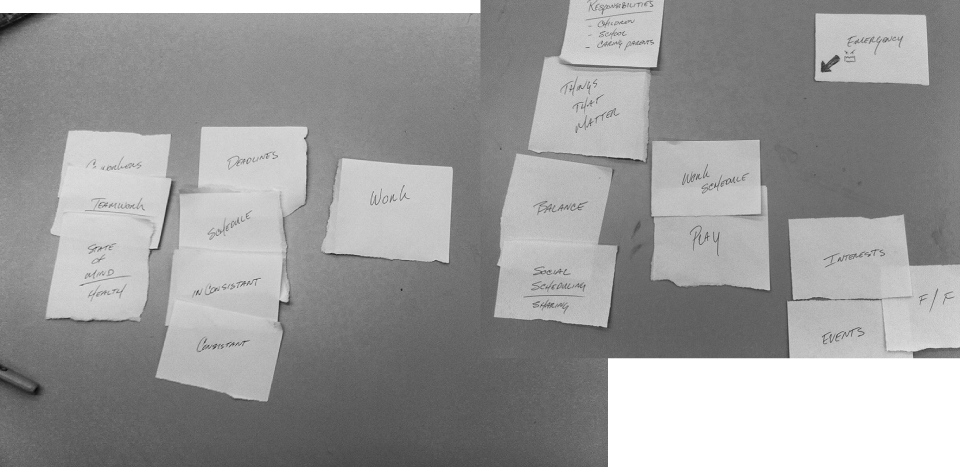 Coworkers
Teamwork
State
of
Mind
Health
Deadlines
Schedule
Inconsistant
Consistant
Work
Responsibilities
- Children
- School
- Caring Parents
Things
That
Matter
Balance
Social
Scheduling
Sharing
Work
Schedule
Play
Emergency
Interests
Events
F/F